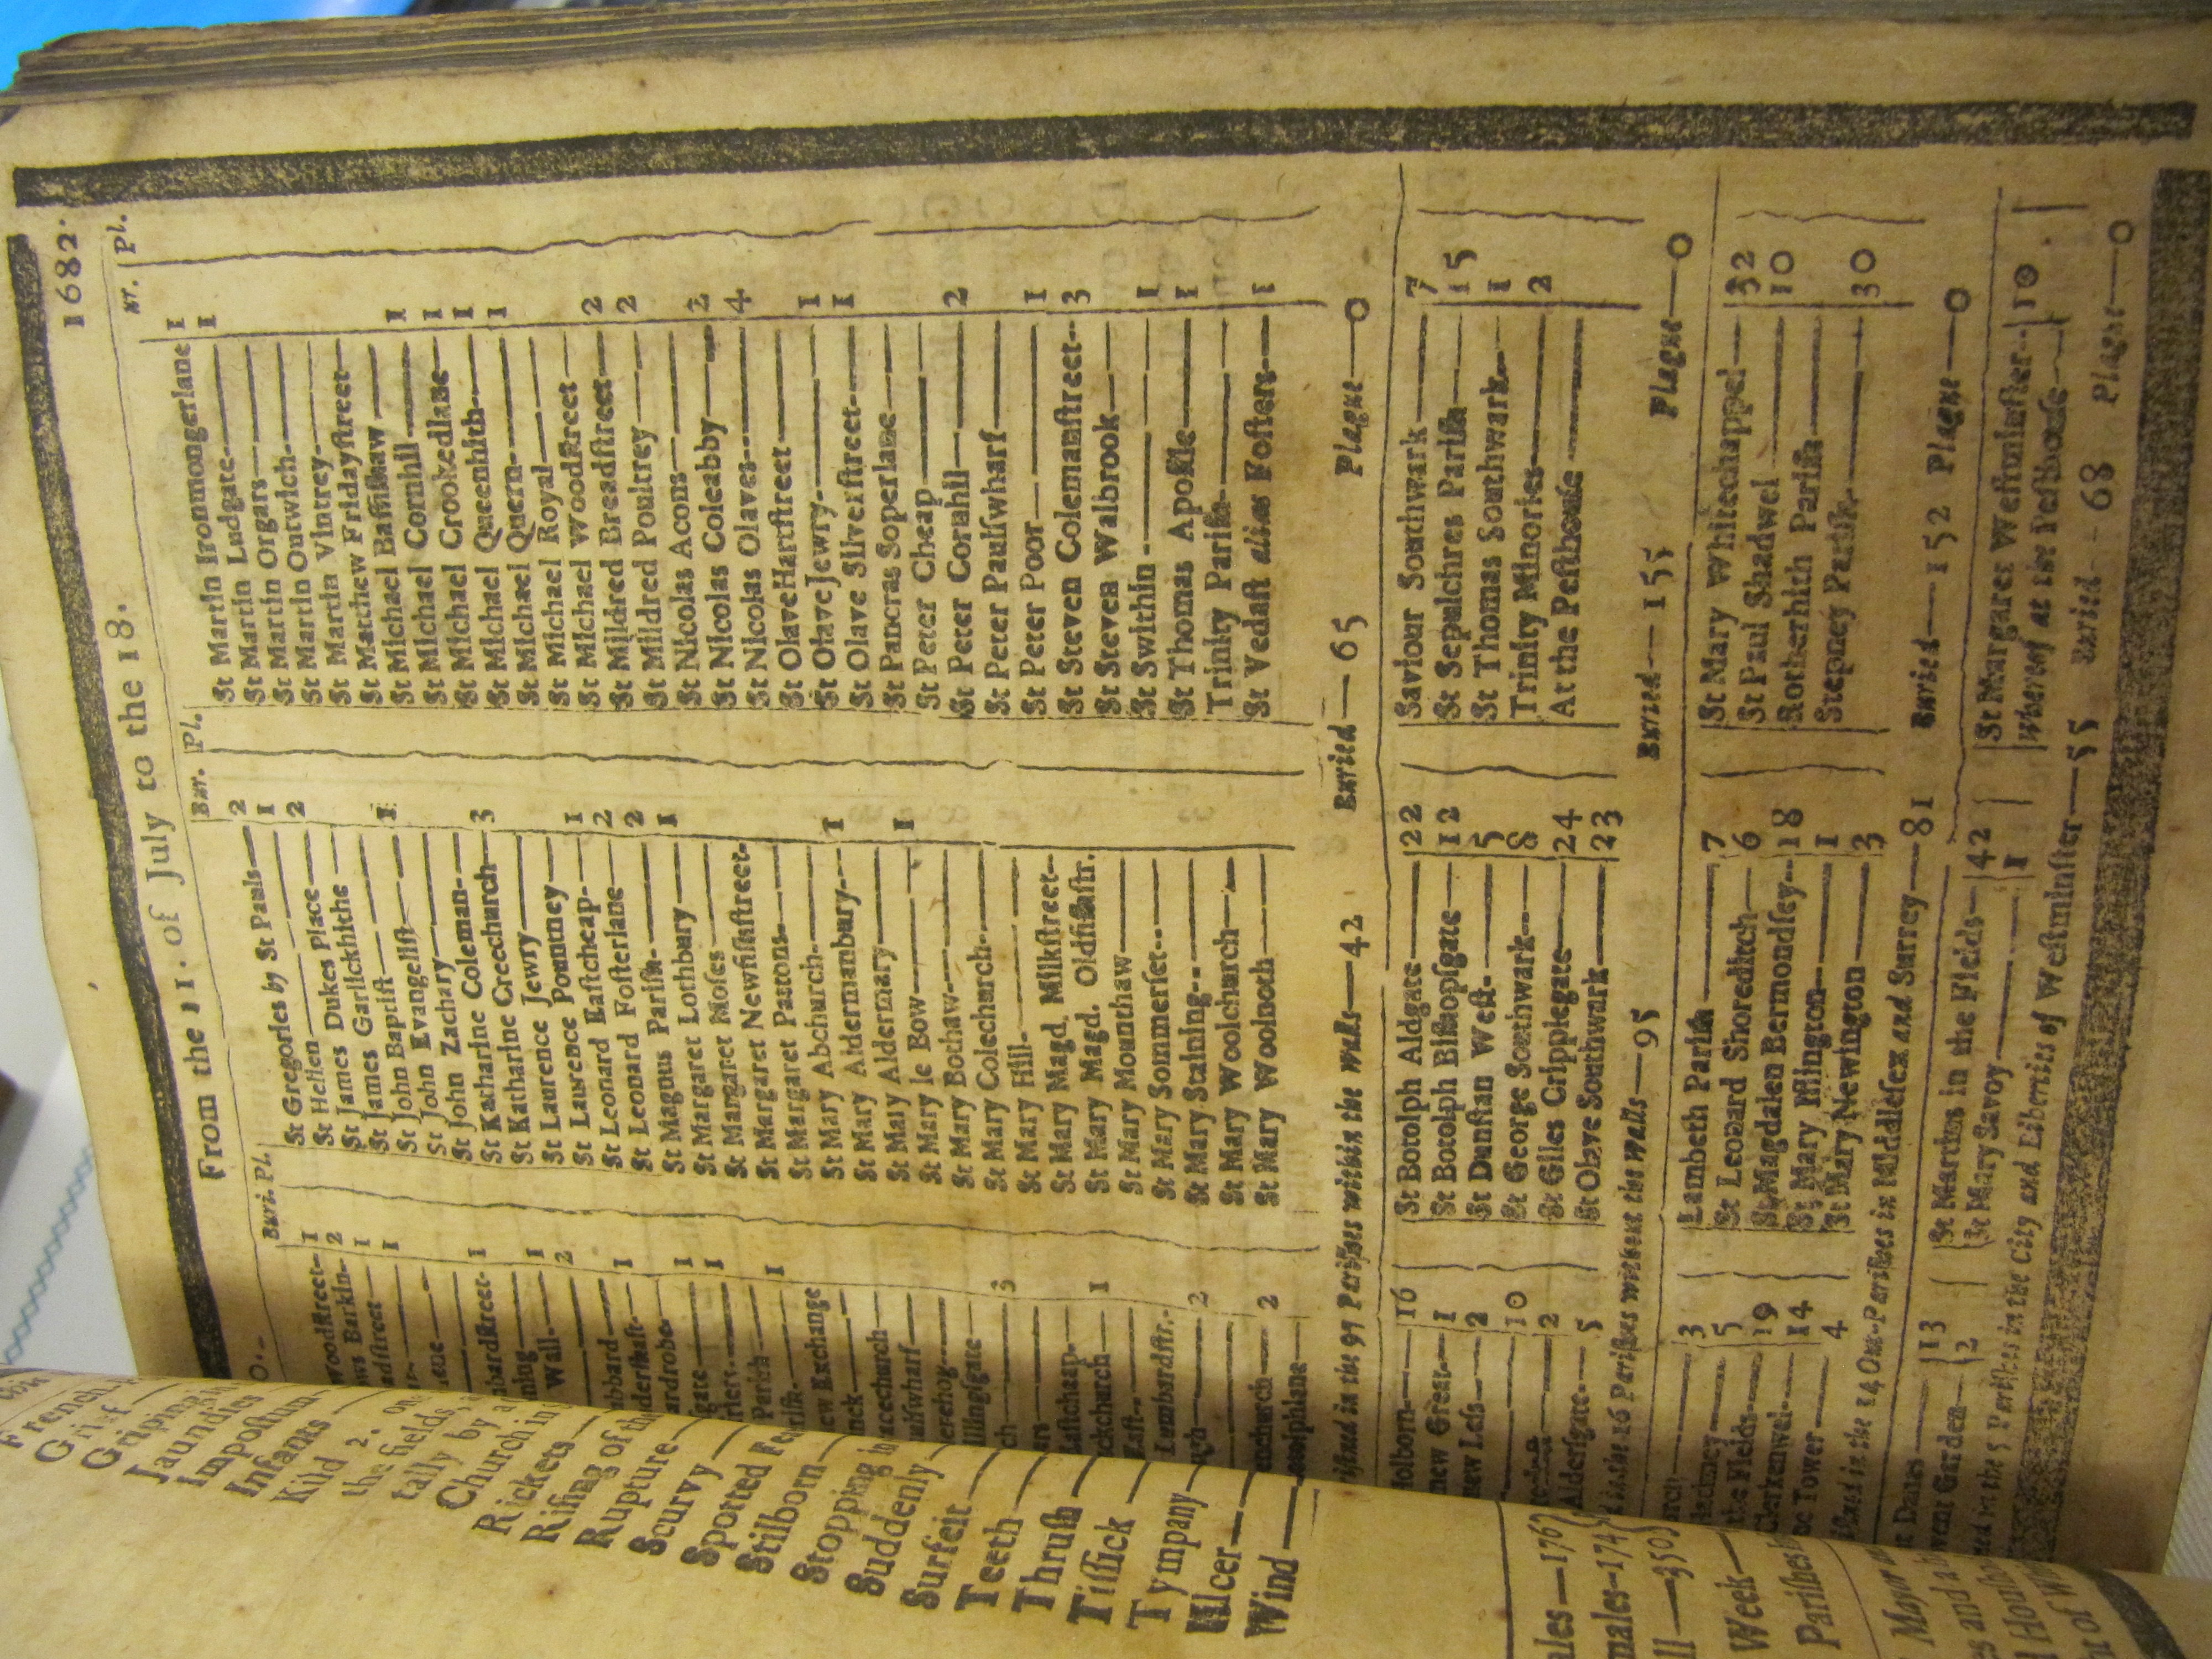 1682.
From the 11. of July to the 18.
Buri. Pl.
Woodſtreet— 1
ws Barkin— 2
adſtreet— 1
1
ene—
bardſtreet- 1
ning—
Wall.— 1
2
bbard—
derſhaft— 1
ardrobe—
gate— 1
1
Pariſh—
1
ew Exchange
acechurch—
llingſgate—
ch— 3
Eaſtcheap—
ckchurch— 1
Eaſt—
Lumbardſtr.-
2
2
Bur. Pl.
St Gregories by St Pauls— 2
St Hellen— 1
St James Dukes Place— 2
St James Garlickhithe—
St John Baptiſt—
St John Evangeliſt— 1
St John Zachary—
St Katharine Coleman—
St Katharine Creechurch— 3
St Laurence Jewry—
St Laurence Pountney—
St Leonard Eaſtcheap— 1
St Leonard Foſterlane— 2
St Magnus Pariſh— 2
St Margaret Lothbury— 1
St Margaret Moſes—
St Margaret Newfiſhſtreet-
St Margaret Pattons—
St Mary Abchurch—
St Mary Aldermanbury— 1
St Mary Aldermary—
St Mary le Bow— 1
St Mary Bothaw—
St Mary Colechurch—
St Mary Hil—
St Mary Magd. Milkſtreet-
St Mary Magd. Oldfiſhſtr.
St Mary Mounthaw—
St Mary Sommerſet—
St Mary Staining—
St Mary Woolchurch—
St Mary Woolnoth—
Pl.
St Martin Ironmongerlane 1
St Martin Ludgate— 1
St Martin Orgars—
St Martin Outwich—
St Martin Vintrey—
St Matthew Fridayſtreet—
St Michael Baſſiſhaw—
St Michael Cornhil— 1
St Michael Crookedlane— 1
St Michael Queenhith— 1
St Michael Quern— 1
St Michael Royal—
St Michael Woodſtreet—
St Mildred Breadſtreet— 2
St Mildred Poultrey— 2
St Nicolas Acons—
St Nicolas Coleabby— 2
St Nicolas Olaves— 4
St Olave Hartſtreet—
St Olave Jewry— 1
St Olave Silverſtreet— 1
St Pancras Soperlane—
St Peter Cheap—
St Peter Cornhil— 2
St Peter Paulſwharf—
St Peter Poor— 1
St Steven Colemanſtreet— 3
St Steven Walbrook—
St Swithin— 1
St Thomas Apoſtle— 1
Trinity Pariſh—
St Vedaſt alias Foſters— 1
in the 97 Pariſhes within the walls—42 Buried—65 Plague—0
Holborn— 16
new Great— 1
new Leſs— 2
10
2
Alderſgate— 5
St Botolph Aldgate— 22
St Botolph Biſhopſgate— 12
St Dunſtan Weſt— 5
St George Southwark— 8
St Giles Cripplegate— 24
St Olave Southwark— 23
Saviour Southwark— 7
St Sepulchres Pariſh— 15
St Thomas Southwark— 1
Trinity Minories— 2
At the Peſthouſe—
in the 16 Pariſhes without the walls—95 Buried—155 Plague—0
3
5
the Fields— 19
Clerkenwel— 14
Tower— 4
Lambeth Pariſh— 7
St Leonard Shoreditch— 6
St Magdalen Bermondſey— 18
St Mary Iſlington— 1
St Mary Newington— 3
St Mary Whitechappel— 32
St Paul Shadwel— 10
Rotherhith Pariſh—
Stepney Pariſh— 30
in the 14 Out-Pariſhes in Middleſex and Surrey—81 Buried—152 Plague—0
Danes— 13
Garden— 2
St Martins in the Fields— 42
St Mary Savoy— 1
St Margaret Weſtminſter— 10
Whereof at the Peſthouſe—
in the 5 Pariſhes in the City and Liberties of Weſtminſter—55 Buried—68 Plague—0
French
Grief
Griping
Jaundies
Impoſtum-
Infants
Kild 2.
the fields,
tally by a
Church in
Rickets—
Riſing of the
Rupture—
Scurvy—
Spotted Fe
Stilborn—
Stopping in
Suddenly—
Surfeit—
Teeth—
Thruſh—
Tiſſick—
Tympany—
Ulcer—
Wind—
ales—176
males—174
ll—350
Week—
Pariſhes
Mayor